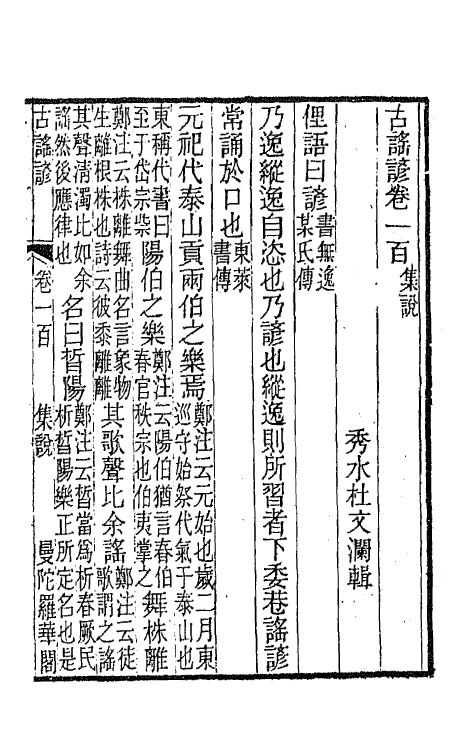 古謠諺卷一百 集說
秀水杜文瀾輯
俚語曰諺 書無逸某氏傳
乃逸縱逸自恣也乃諺也縱逸則所習者下委巷謠諺
常誦於口也 東萊書傳
元祀代泰山貢兩伯之樂焉 鄭注云元始也歲二月東巡守始祭代氣于泰山也
東稱代書曰至于岱宗柴 陽伯之樂 鄭注云陽伯猶言春伯春官秩宗也伯夷掌之 舞株離
鄭注云株離舞曲名言象物生離根株也詩云彼黍離離 其歌聲比余謠 鄭注云徒歌謂之謠
其聲淸濁比如余謠然後應律也 名曰晳陽 鄭注云晳當爲析春厥民析晳陽樂正所定名也是
古謠諺 卷一百 集說 曼陀羅華閣